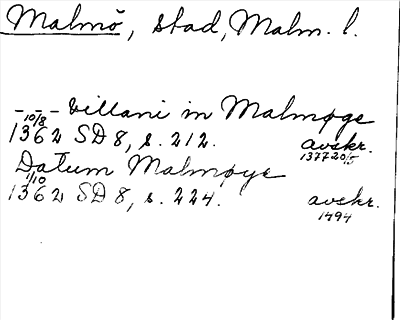 Malmö, stad, Malm. l.
- - - villani in Malmøge
10/8
1362 SD 8, s. 212. avskr.
1377 20/5
Datum Malmøye
1/10
1362 SD 8, s. 224. avskr.
1494